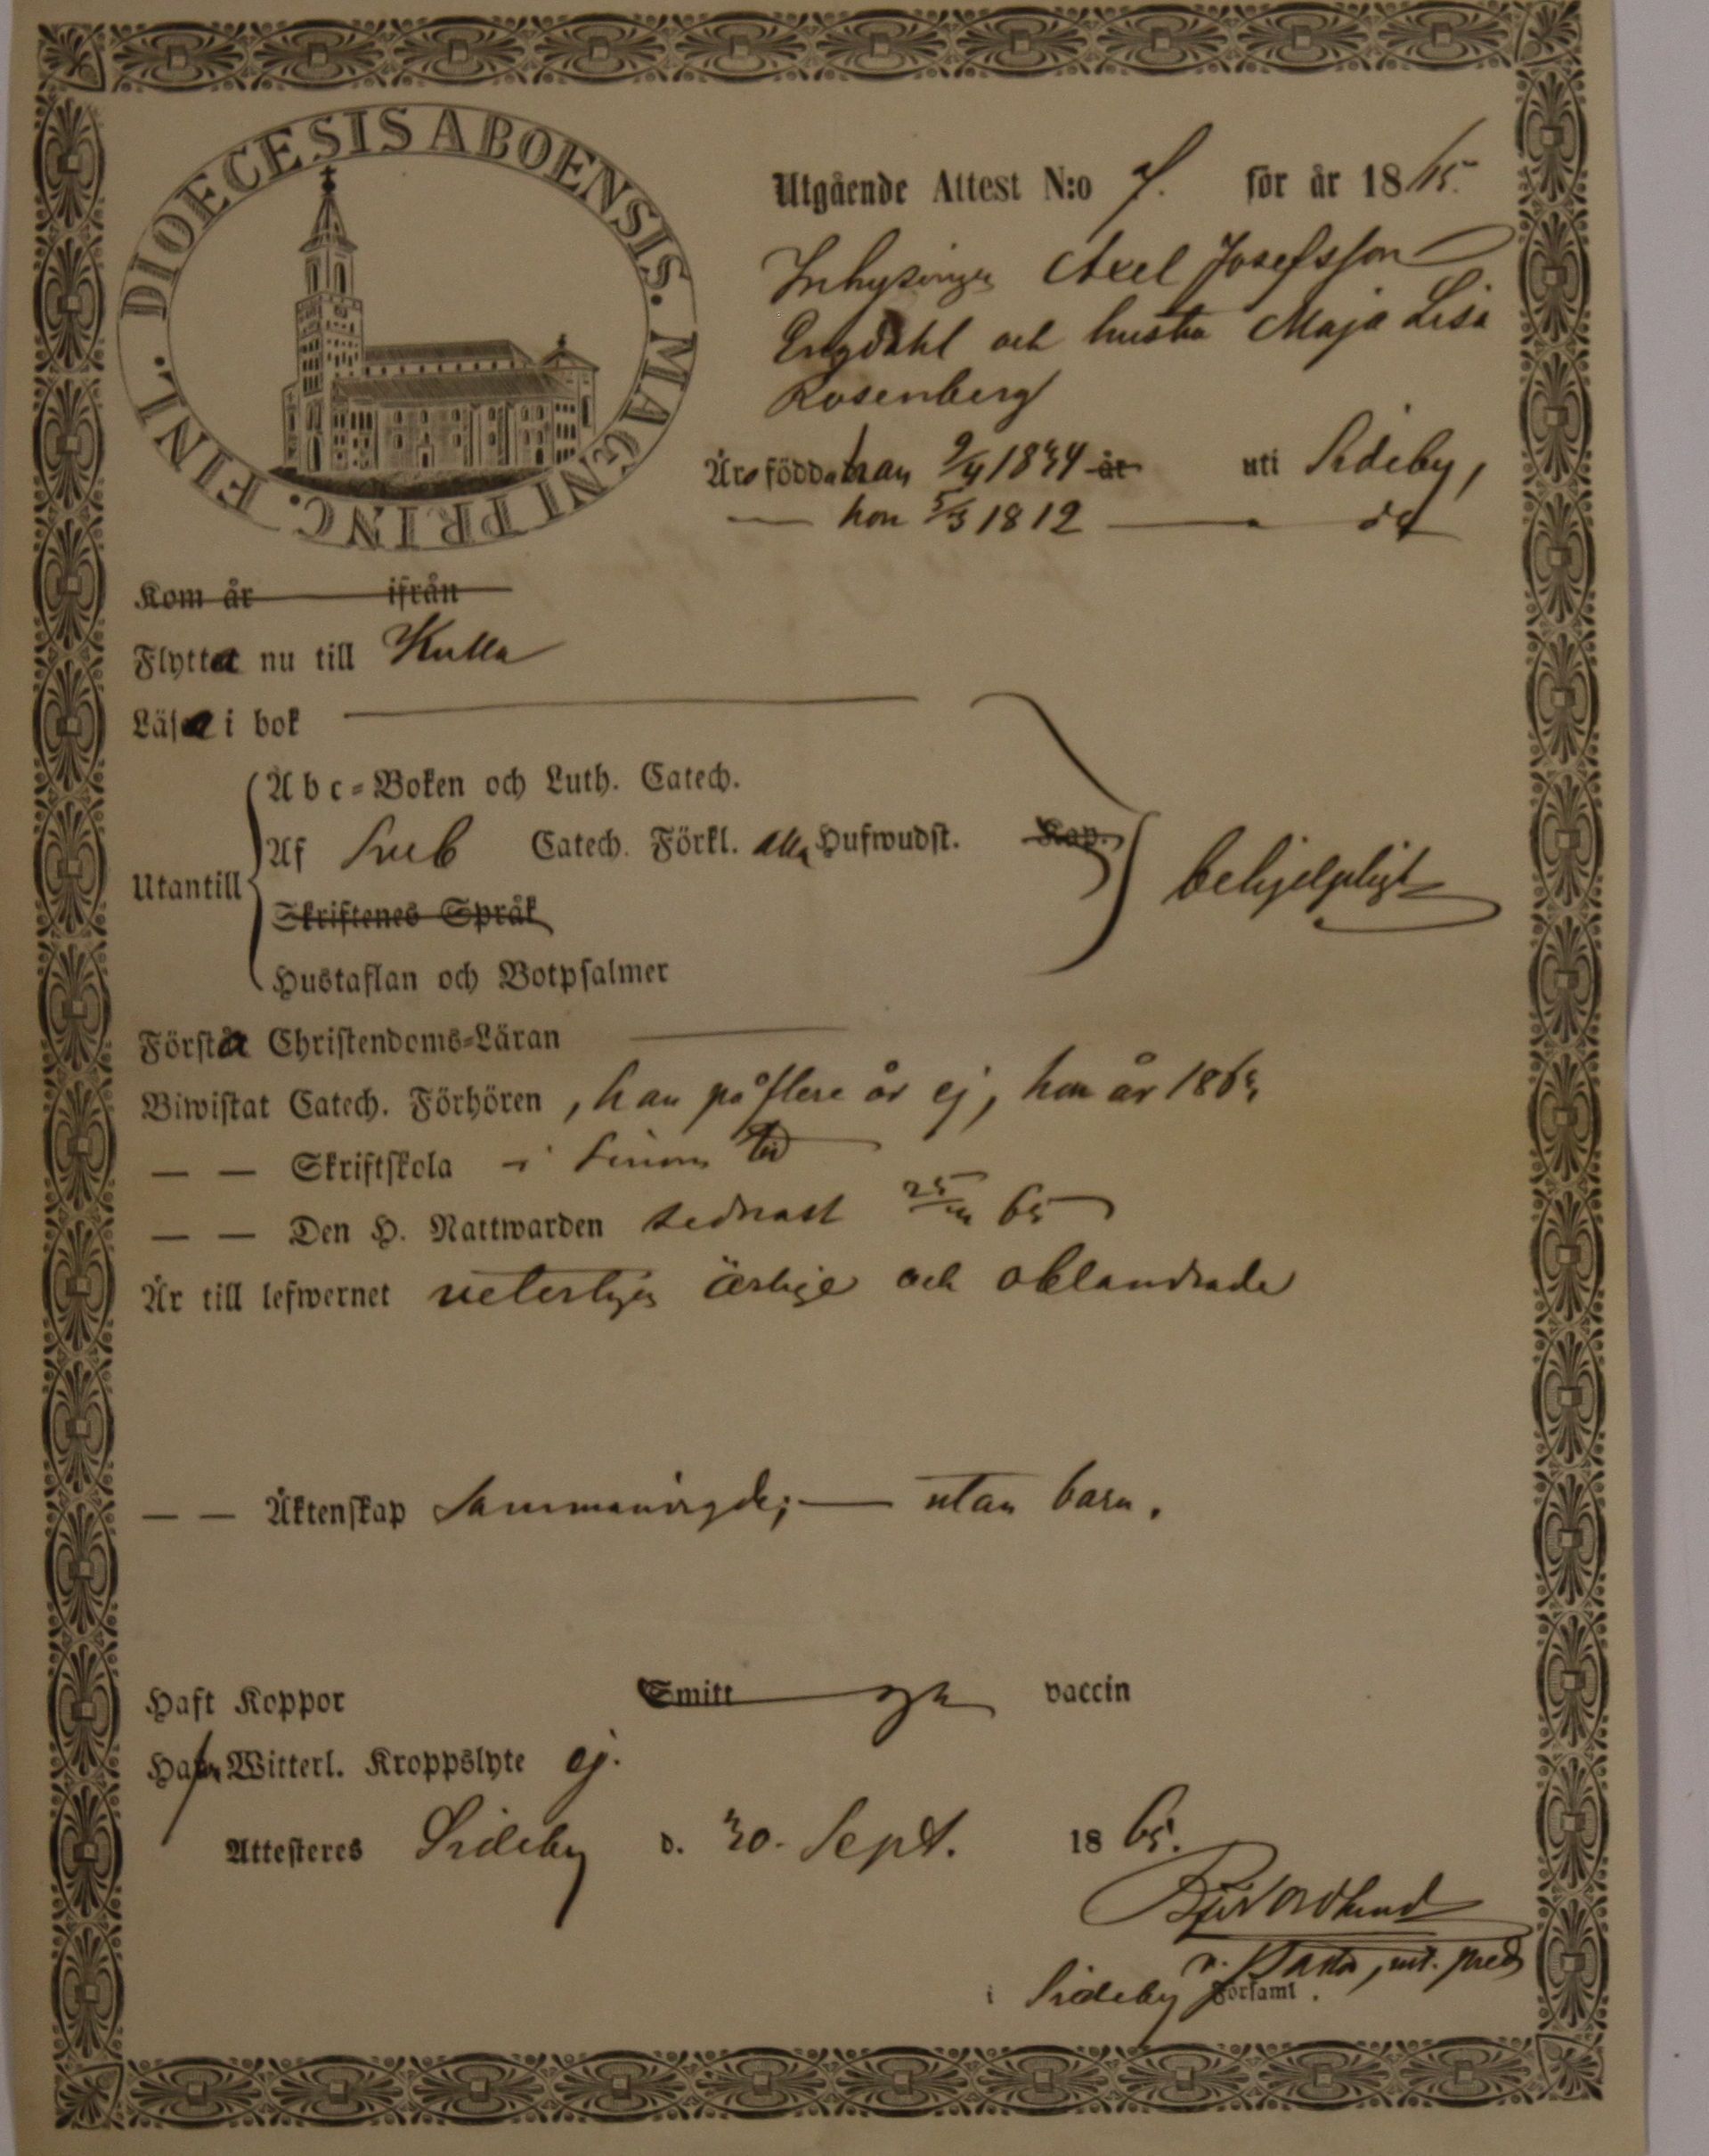 DIOECESIS ABOENSIS. MAGNI PRINC. FINL.
Utgående Attest N:o 7. för år 1865.
Inhysingen Axel Josefsson
Engdahl och hustru Maja Lisa
Rosenberg
Äro födda han 9/4 1834 år uti Sideby,
— hon 5/3 1812 — do
Kom år ifrån
Flytta nu till Kulla
Läsa i bok
Abc-Boken och Luth. Catech.
Af Sveb Catech. Förkl. alla Hufwudst. Kap.
Utantill
behjelpligt
Skriftenes Språk
Hustaflan och Botpsalmer
Förstå Christendoms-Läran
Biwistat Catech. Förhören, han på flere år ej, hon år 1865
— — Skriftskola i sinom tid
— — Den H. Nattwarden sednast 25/ 65
Är till lefwernet veterligen ärlige och oklandrade
— — Äktenskap sammanvigde; — utan barn.
Haft Koppor Smitt vaccin
Hafva Witterl. Kroppslyte ej.
Attesteres Sideby d. 30. Sept. 1865.
Nordlund
v. Pastor,
i Sideby Församl.